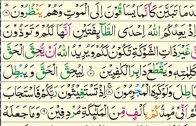 بَعْدَمَا تَبَيَّنَ كَأَنَّمَا يُسَاقُونَ إِلَى الْمَوْتِ وَهُمْ يَنْظُرُونَ
يَعِدُكُمُ اللَّهُ إِحْدَى الطَّائِفَتَيْنِ أَنَّهَا لَكُمْ وَتَوَدُّونَ
غَيْرَ ذَاتِ الشَّوْكَةِ تَكُونُ لَكُمْ وَيُرِيدُ اللَّهُ أَنْ يُحِقَّ الْحَقَّ
بِكَلِمَتِهِ وَيَقْطَعَ دَابِرَ الْكَفِرِينَ لِيُحِقَّ الْحَقَّ وَيُبْطِلَ
إِذْ تَسْتَغِيثُونَ رَبَّكُمْ فَاسْتَجَابَ
أَنِّي مُمِدُّكُمْ بِأَلْفٍ مِنَ الْمَلَئِكَةِ مُرْدِفِينَ وَمَا جَعَلَهُ